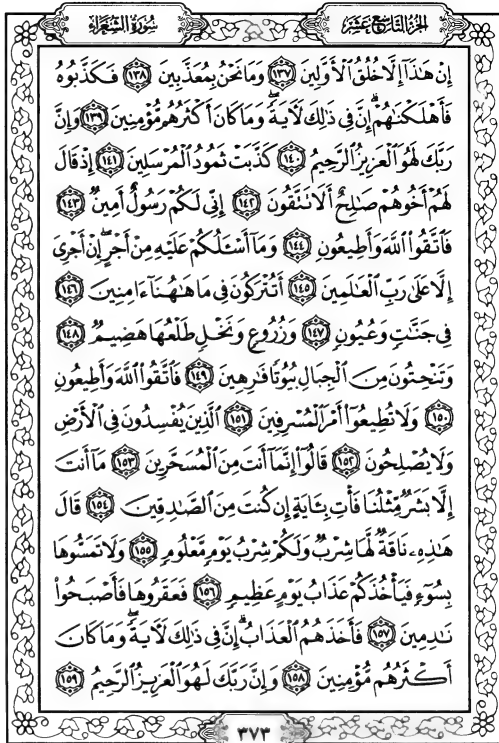 الجزء التاسع عشر
سورة الشعراء
إِنْ هَٰذَآ إِلَّا خُلُقُ ٱلْأَوَّلِينَ ١٣٧ وَمَا نَحْنُ بِمُعَذَّبِينَ ١٣٨ فَكَذَّبُوهُ
فَأَهْلَكْنَٰهُمْ ۗ إِنَّ فِى ذَٰلِكَ لَآيَةً ۖ وَمَا كَانَ أَكْثَرُهُم مُّؤْمِنِينَ ١٣٩ وَإِنَّ
رَبَّكَ لَهُوَ ٱلْعَزِيزُ ٱلرَّحِيمُ ١٤٠ كَذَّبَتْ ثَمُودُ ٱلْمُرْسَلِينَ ١٤١ إِذْ قَالَ
لَهُمْ أَخُوهُمْ صَٰلِحٌ أَلَا تَتَّقُونَ ١٤٢ إِنِّى لَكُمْ رَسُولٌ أَمِينٌ ١٤٣
فَٱتَّقُوا۟ ٱللَّهَ وَأَطِيعُونِ ١٤٤ وَمَآ أَسْـَٔلُكُمْ عَلَيْهِ مِنْ أَجْرٍ ۖ إِنْ أَجْرِىَ
إِلَّا عَلَىٰ رَبِّ ٱلْعَٰلَمِينَ ١٤٥ أَتُتْرَكُونَ فِى مَا هَٰهُنَآ ءَامِنِينَ ١٤٦
فِى جَنَّٰتٍ وَعُيُونٍ ١٤٧ وَزُرُوعٍ وَنَخْلٍ طَلْعُهَا هَضِيمٌ ١٤٨
وَتَنْحِتُونَ مِنَ ٱلْجِبَالِ بُيُوتًا فَٰرِهِينَ ١٤٩ فَٱتَّقُوا۟ ٱللَّهَ وَأَطِيعُونِ
١٥٠ وَلَا تُطِيعُوٓا۟ أَمْرَ ٱلْمُسْرِفِينَ ١٥١ ٱلَّذِينَ يُفْسِدُونَ فِى ٱلْأَرْضِ
وَلَا يُصْلِحُونَ ١٥٢ قَالُوٓا۟ إِنَّمَآ أَنتَ مِنَ ٱلْمُسَحَّرِينَ ١٥٣ مَآ أَنتَ
إِلَّا بَشَرٌ مِّثْلُنَا فَأْتِ بِـَٔايَةٍ إِن كُنتَ مِنَ ٱلصَّٰدِقِينَ ١٥٤ قَالَ
هَٰذِهِۦ نَاقَةٌ لَّهَا شِرْبٌ وَلَكُمْ شِرْبُ يَوْمٍ مَّعْلُومٍ ١٥٥ وَلَا تَمَسُّوهَا
بِسُوٓءٍ فَيَأْخُذَكُمْ عَذَابُ يَوْمٍ عَظِيمٍ ١٥٦ فَعَقَرُوهَا فَأَصْبَحُوا۟
نَٰدِمِينَ ١٥٧ فَأَخَذَهُمُ ٱلْعَذَابُ ۗ إِنَّ فِى ذَٰلِكَ لَآيَةً ۖ وَمَا كَانَ
أَكْثَرُهُم مُّؤْمِنِينَ ١٥٨ وَإِنَّ رَبَّكَ لَهُوَ ٱلْعَزِيزُ ٱلرَّحِيمُ ١٥٩
٣٧٣